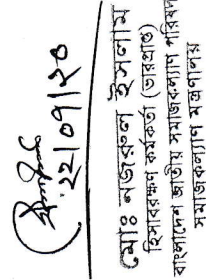 ২২/০৭/২০
মোঃ নজরুল ইসলাম
হিসাবরক্ষণ কর্মকর্তা (ভারপ্রাপ্ত)
বাংলাদেশ জাতীয় সমাজকল্যাণ পরিষদ
সমাজকল্যাণ মন্ত্রণালয়